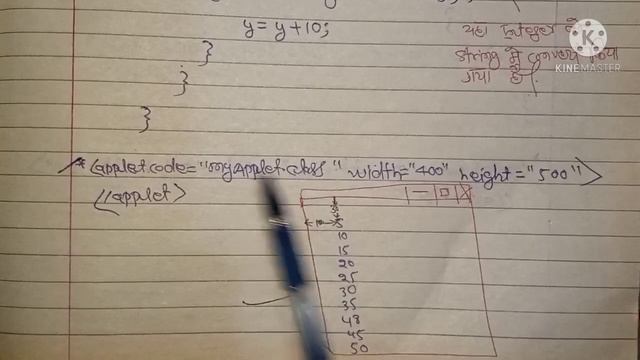 y = y+10;
यहा Integer को
string में convert किया
गया है।
}
}
}
/* <applet code="myapplet.class" width="400" height="500">
</applet>
10
5
10
15
20
25
30
35
48
45
50
KINEMASTER